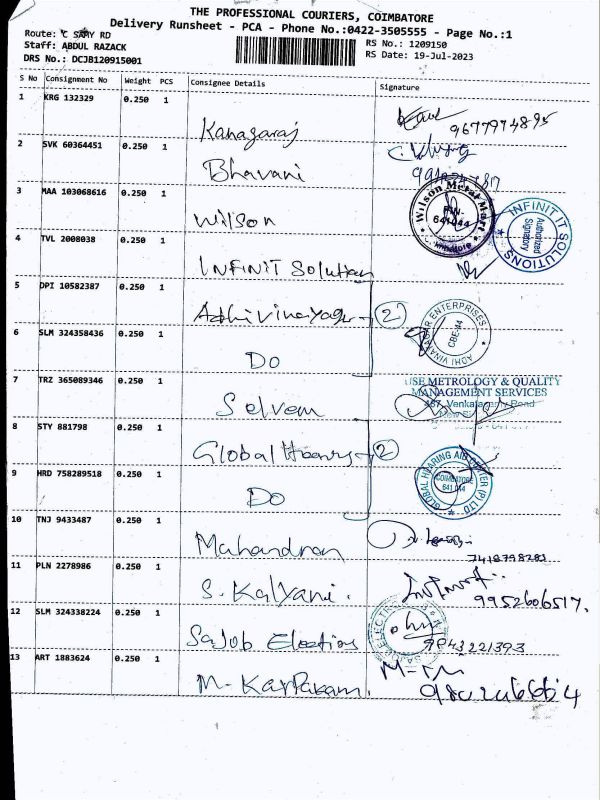 THE PROFESSIONAL COURIERS, COIMBATORE
Delivery Runsheet - PCA - Phone No.:0422-3505555 - Page No.:1
Route: RD
Staff: ABDUL RAZACK
DRS No.: DCJB120915001
RS No.: 1209150
RS Date: 19-Jul-2023
S No Consignment No Weight PCS Consignee Details Signature
1 KRG 132329 0.250 1 Kanagaraj
9677974895
2 SVK 60364451 0.250 1 Bhavani
3 MAA 103068616 0.250 1 Wilson
Wilson Metal Mart
PIN-
641044
Coimbatore
INFINIT IT SOLUTIONS
Authorized
Signatory
4 TVL 2008038 0.250 1 INFINIT Solution
5 DPI 10582387 0.250 1 Adhivinayagar 2
ADHI VINAYAGAR ENTERPRISES
CBE-44
6 SLM 324358436 0.250 1 Do
7 TRZ 365089346 0.250 1 Selvem
USE METROLOGY & QUALITY
MANAGEMENT SERVICES
Road
8 STY 881798 0.250 1 Global Hearing 2
GLOBAL HEARING AID CENTER (P) LTD
COIMBATORE
641 044
9 HRD 758289518 0.250 1 Do
10 TNJ 9433487 0.250 1 Mahandran
7418798283
11 PLN 2278986 0.250 1 S. Kalyani.
9952606517.
12 SLM 324338224 0.250 1 Sajob
9843221393
13 ART 1883624 0.250 1 M-Karpakam.